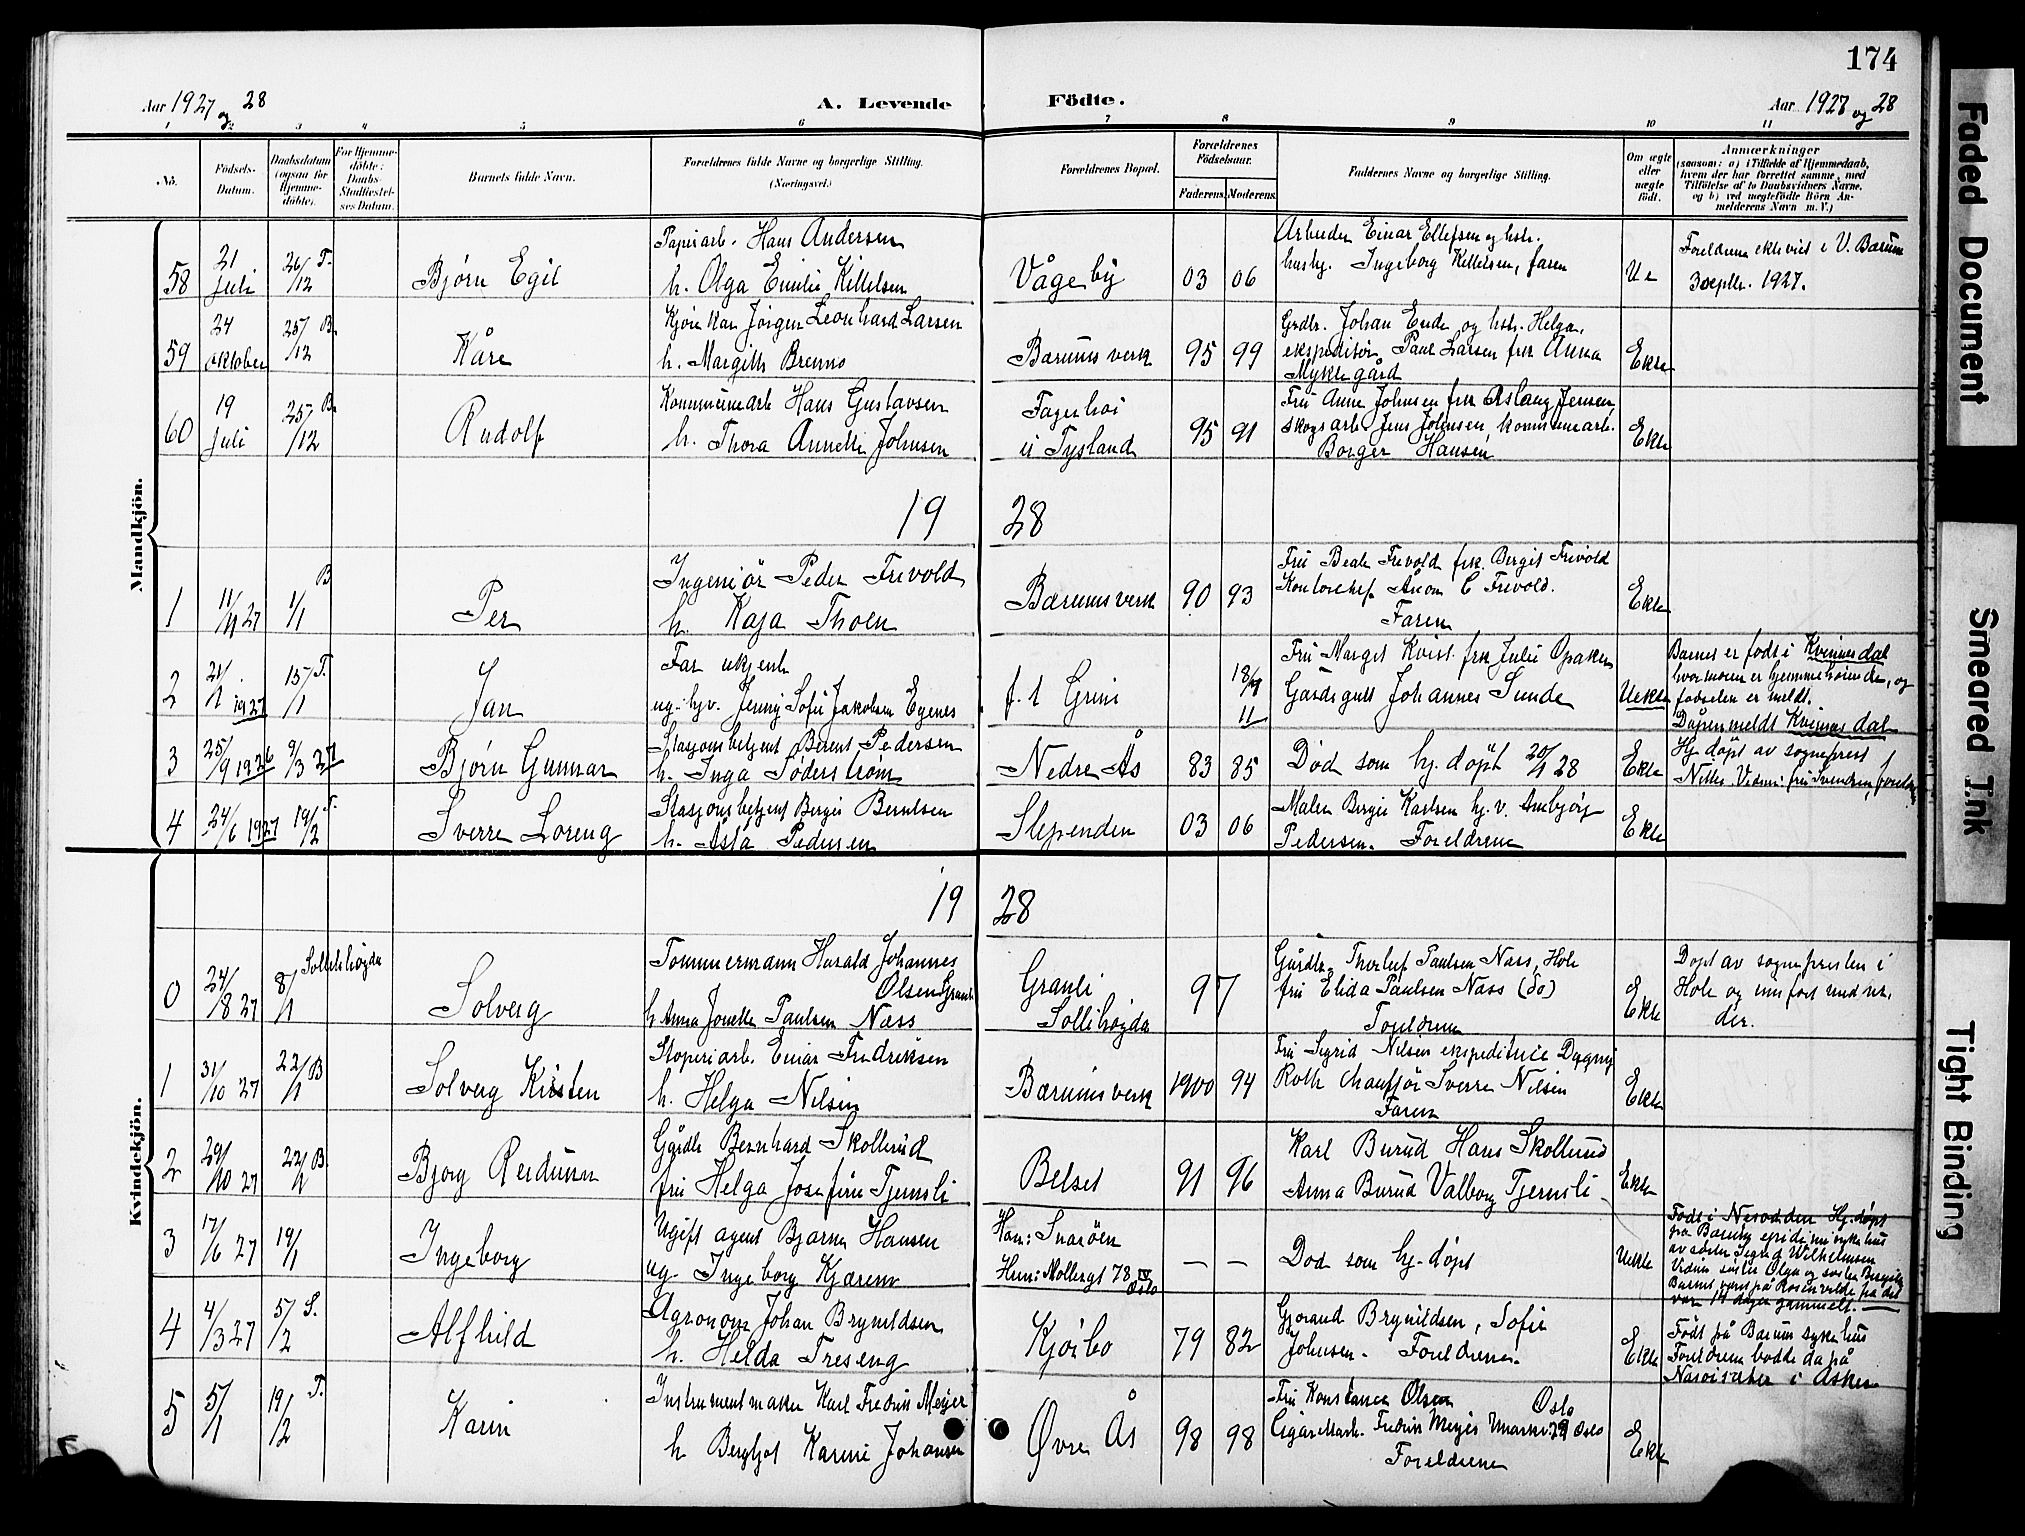 174
Aar 1927 og 28
A. Levende Födte.
Aar 1927 og 28
1 2 3 4 5 6 7 8 9 10 11
No.
Födsels-Datum.
Daabsdatum (ogsaa for Hjemme-döbte).
For Hjemme-döbte: Daabs-Stadfæstel-ses Datum.
Barnets fulde Navn.
Forældrenes fulde Navne og borgerlige Stilling. (Næringsvei.)
Forældrenes Bopæl.
Forældrenes Födselsaar.
Faderens. Moderens.
Faddernes Navne og borgerlige Stilling.
Om ægte eller uægte födt.
Anmærkninger
(saasom: a) i Tilfælde af Hjemmedaab, hvem der har forrettet samme, med Tilföielse af to Daabsvidners Navne, og b) ved uægtefödte Börn Anmelderens Navn m. V.)
Mandkjön.
58 21 juli 26/12 T. Bjørn Egil
Papirarb. Hans Andersen
h. Olga Emilie Kittelsen
Vågeby 03 06
Arbeider Einar Ellefsen og hstr.
husby. Ingeborg Kittelsen, faren
Ue
Foreldrene ektevied i V. Bærum
3 septbr. 1927.
59 24 oktober 25/12 B. Kåre
Kjørekar Jörgen Leonhard Larsen
h. Margith Brenno
Bærums verk 95 99
Grdbr. Johan Ende og hstr. Helga,
ekspeditør Paul Larsen frk Anna
Myklegård
Ekte
60 19 juli 25/12 B. Rudolf
Kommunearb Hans Gustavsen
h. Thora Annette Johnsen
Fagerhøi
i Tysland 95 91
Fru Anne Johnsen frk Aslaug Jensen,
skogsarb. Jens Johnsen, kommunearb.
Borger Hansen
Ekte
1928
1 11/11 27 1/1 B Per
Ingeniør Peder Frivold
h. Kaja Thoen
Bærums verk 90 93
Fru Beate Frivold frk. Bergit Frivold
Kontorchef Aron C Frivold.
Faren
Ekte
2 21/1 1927 15/1 T. Jan
Far ukjent
ug. hjv. Jenny Sofie Jakobsen Egenes
f. t Grini 18/9 11
Fru Margit Kvist. frk Julie Opaker
Gårdsgutt Johannes Sunde
Uekte
Barnet er født i Kvinnesdal
hvor moren er hjemmehørende, og
fødselen er meldt.
Dåpen meldt Kvinnesdal
3 25/9 1926 9/3 27 Bjørn Gunnar
Stasjonsbetjent Berent Pedersen
h. Inga Söderstrøm
Nedre Ås 83 85
Død som hj. döpt 20/1 28
Ekte
Hj. døpt av sogneprest
4 24/6 1927 19/2 T. Sverre Loreng
Stasjonsbetjent Berger Berntsen
h. Åsta Pedersen
Slependen 03 06
Maler Birger Karlsen hj. v. Ambjørg
Pedersen. Foreldrene
Ekte
Kvindekjön.
1928
0 24/8 27 8/1 Sollihøgda Solveig
Tømmermann Harald Johannes
Olsen Granli
h. Anna Jonette Paulsen Næss
Granli
Sollihøgda 97
Gårdbr. Thorleif Paulsen Næss, Hole
fru Elida Paulsen Næss (do)
Foreldrene
Ekte
Døpt av sognepresten i
Hole og innført under nr.
der.
1 31/10 27 22/1 B Solveig Kirsten
Støperiarb. Einar Fredriksen
h. Helga Nilsen
Bærums verk 1900 94
Fru Sigrid Nilsen ekspeditrice Dagny
Roth chauffør Sverre Nilsen
Faren
Ekte
2 29/10 27 22/1 B. Bjørg Reidunn
Gårdb Bernhard Skollerud
fru Helga Josefine Tjernsli
Belset 91 96
Karl Burud Hans Skollerud
Anna Burud Valborg Tjernsli
Ekte
3 17/6 27 19/1 Ingeborg
Ugift agent Bjarne Hansen
ug. Ingeborg Kjærem
Han: Snarøen
Hun: Møllergt 78 IV Oslo
— —
Død som hj. døpt
Uekte
Født i Nesodden Hj. døpt
på Bærums epidemisykehus
av søster Sigrid Wilhelmsen
Barnet vært på Rosenvilde fra det
var 14 dager gammelt. —
4 4/3 27 5/2 S. Alfhild
Agronom Johan Brynildsen
h. Helda Treseng
Kjørbo 79 82
Gjorand Brynildsen, Sofie
Johnsen. Foreldrene.
Ekte
Født på Bærum sykehus
Foreldrene bodde da på
i Asker
5 5/1 19/2 T. Karin
Instrumentmaker Karl Fredrin Meyer
h Bergljot Karine Johansen
Øvre Ås 98 98
Fru Konstance Olsen Oslo
Cigarettarb. Fredrin Meyer Markv. 79 Oslo
Foreldrene
Ekte
Faded Document
Smeared Ink
Tight Binding